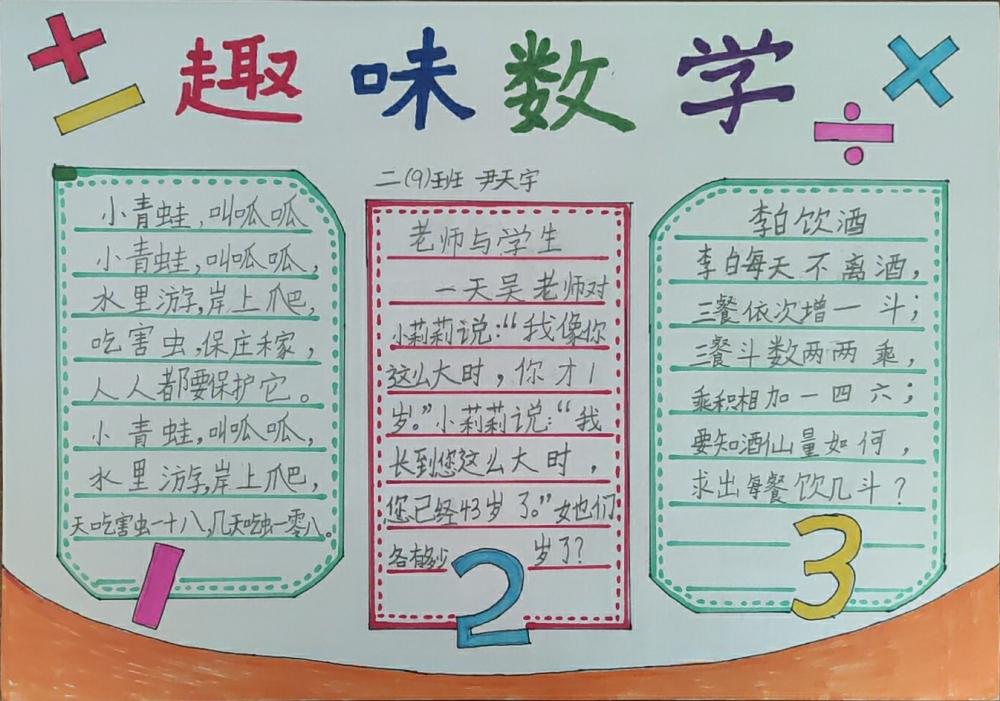 趣味数学
二(9)班 尹天宇
小青蛙,叫呱呱
小青蛙,叫呱呱,
水里游,岸上爬,
吃害虫,保庄稼,
人人都要保护它。
小青蛙,叫呱呱,
水里游,岸上爬,
天吃害虫一十八,几天吃虫一零八。
1
老师与学生
一天吴老师对
小莉莉说:“我像你
这么大时,你才1
岁。”小莉莉说:“我
长到您这么大时,
您已经43岁了。”她们
各有多少岁了?
2
李白饮酒
李白每天不离酒,
三餐依次增一斗;
三餐斗数两两乘,
乘积相加一四六;
要知酒仙量如何,
求出每餐饮几斗?
3